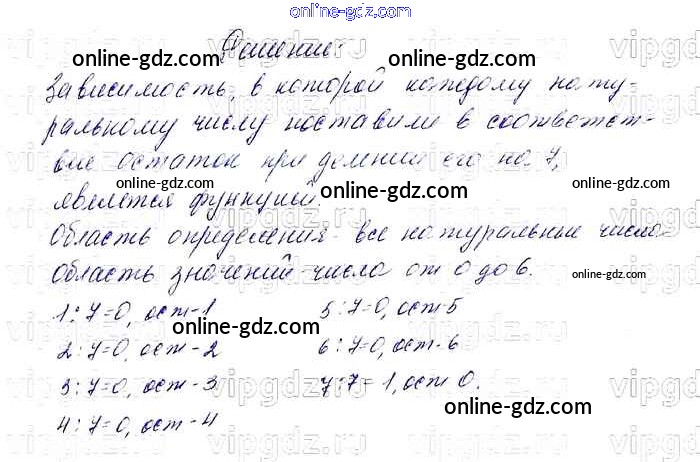 online-gdz.com
Решение:
online-gdz.com
Зависимость, в которой каждому нату-
ральному числу поставили в соответст-
вие остаток при делении его на 7,
является функцией.
online-gdz.com
online-gdz.com
online-gdz.com
Область определения- все натуральные числа
область значений-числа от 0 до 6.
online-gdz.com
1:7=0, ост-1
5:7=0, ост-5
online-gdz.com
2:7=0, ост-2
6:7=0, ост-6
3:7=0, ост-3
7:7=1, ост 0.
online-gdz.com
4:7=0, ост-4
vipgdz.ru